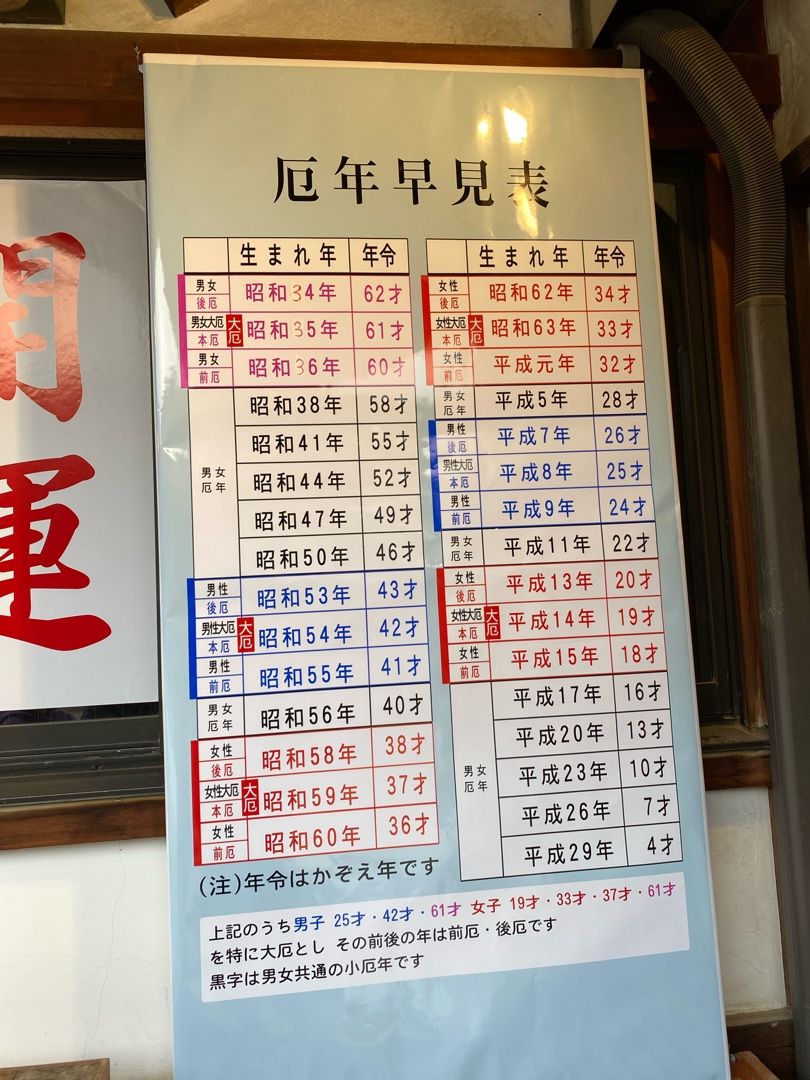 開
運
厄年早見表
生まれ年 年令
男女 後厄 昭和34年 62才
男女大厄 本厄 大厄 昭和35年 61才
男女 前厄 昭和36年 60才
男女 厄年
昭和38年 58才
昭和41年 55才
昭和44年 52才
昭和47年 49才
昭和50年 46才
男性 後厄 昭和53年 43才
男性大厄 本厄 大厄 昭和54年 42才
男性 前厄 昭和55年 41才
男女 厄年 昭和56年 40才
女性 後厄 昭和58年 38才
女性大厄 本厄 大厄 昭和59年 37才
女性 前厄 昭和60年 36才
(注)年令はかぞえ年です
生まれ年 年令
女性 後厄 昭和62年 34才
女性大厄 本厄 大厄 昭和63年 33才
女性 前厄 平成元年 32才
男女 厄年 平成5年 28才
男性 後厄 平成7年 26才
男性大厄 本厄 平成8年 25才
男性 前厄 平成9年 24才
男女 厄年 平成11年 22才
女性 後厄 平成13年 20才
女性大厄 本厄 大厄 平成14年 19才
女性 前厄 平成15年 18才
男女 厄年
平成17年 16才
平成20年 13才
平成23年 10才
平成26年 7才
平成29年 4才
上記のうち男子 25才・42才・61才 女子 19才・33才・37才・61才
を特に大厄とし その前後の年は前厄・後厄です
黒字は男女共通の小厄年です